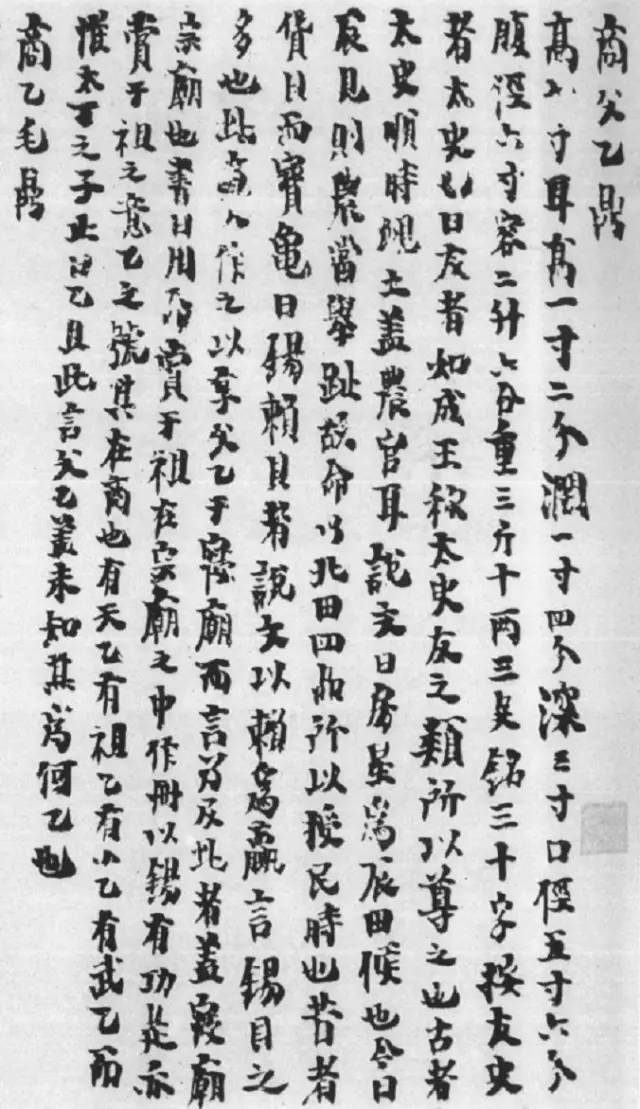 商父乙鼎
高六寸耳高一寸二分濶一寸四分深三寸口徑五寸六分
腹徑六寸容二升六合重三斤十兩三足銘三十字按友史
者太史也曰友者如成王稱太史友之類所以尊之也古者
太史順時覛土盖農官耳說文曰房星為辰田候也今曰
辰見則農當舉趾故命以北田四品所以授民時也昔者
貨貝而寶龜曰錫賴貝者說文以賴為贏言錫貝之
多也此啇人作之以享父乙于寢廟而言及此者盖寢廟
宗廟也書曰用命賞于祖在宗廟之中作冊以錫有功是亦
賞于祖之意乙之號其在商也有天乙有祖乙有小乙有武乙而
惟太丁之子止曰乙且此言父乙盖未知其為何乙也
商乙毛鼎